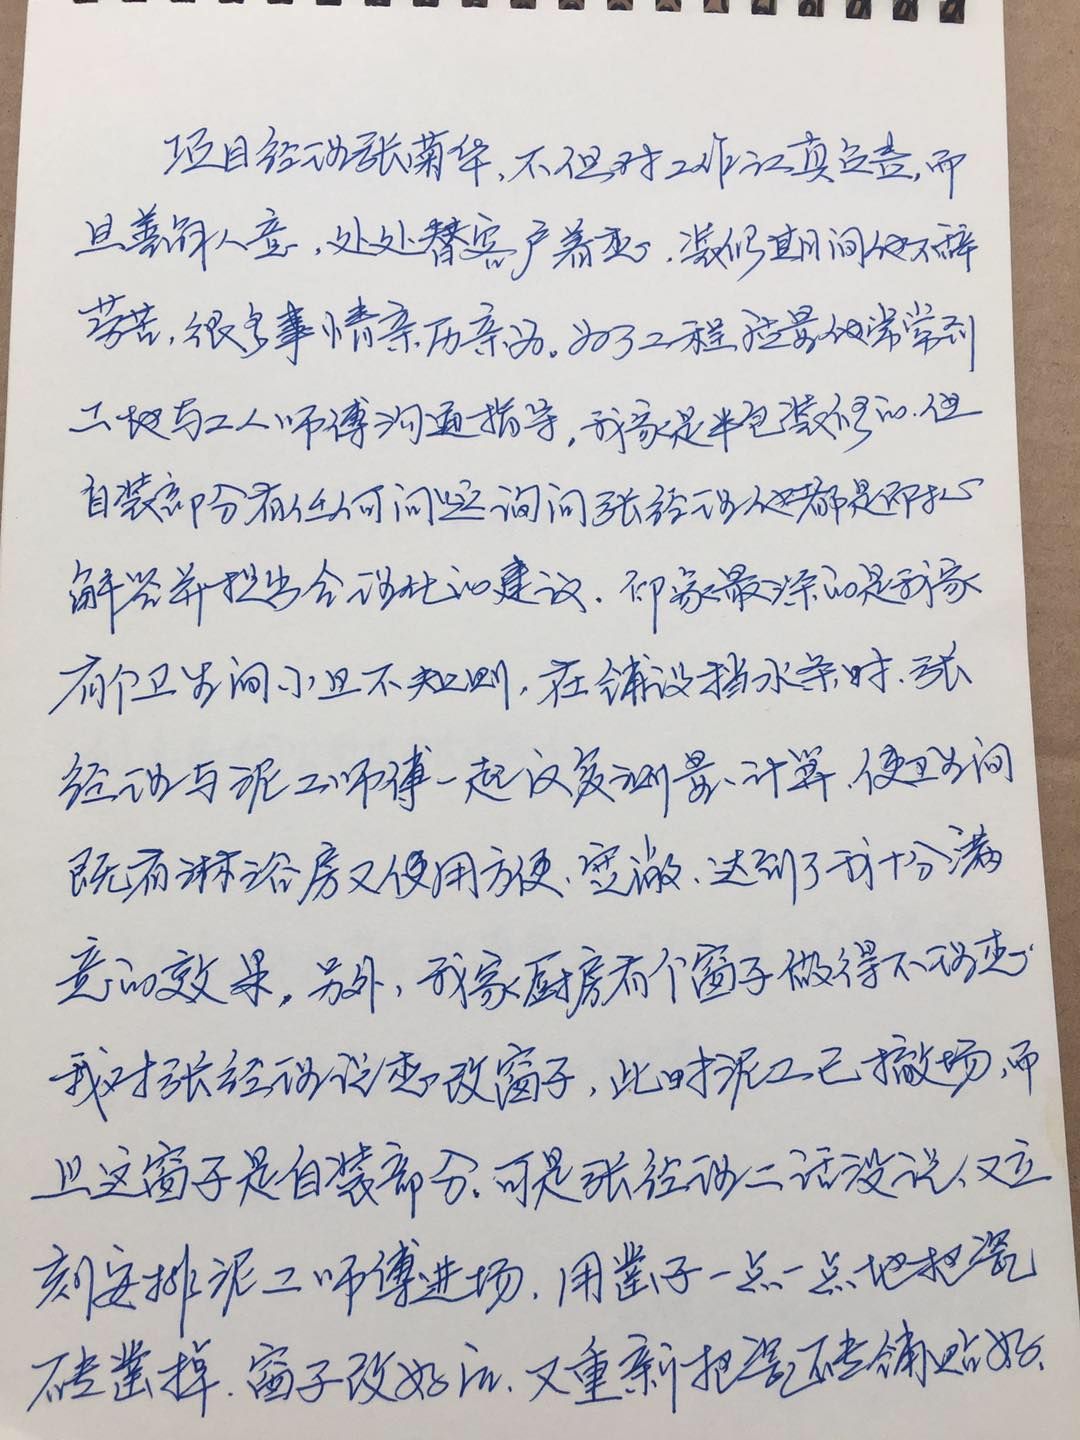 项目经理张菊华，不但对工作认真负责，而
且善解人意，处处替客户着想。装修期间他不辞
劳苦，很多事情亲历亲为。为了工程质量他常常到
工地与工人师傅沟通指导，我家是半包装修的，但
自装部分有任何问题询问张经理他都是即时
解答并提出合理化的建议。印象最深的是我家
有个卫生间小且不规则，在铺设挡水条时，张
经理与泥工师傅一起反复测量、计算，使卫生间
既有淋浴房又使用方便、宽敞，达到了我十分满
意的效果。另外，我家厨房有个窗子做得不理想
我对张经理说想改窗子，此时泥工已撤场，而
且这窗子是自装部分。可是张经理二话没说，又立
刻安排泥工师傅进场，用凿子一点一点地把瓷
砖凿掉，窗子改好后，又重新把瓷砖铺贴好，